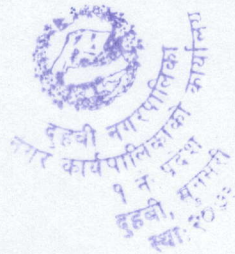 दुहवी नगरपालिका
नगर कार्यपालिकाको कार्यालय
१ नं. प्रदेश
दुहवी, सुनसरी
स्था. २०